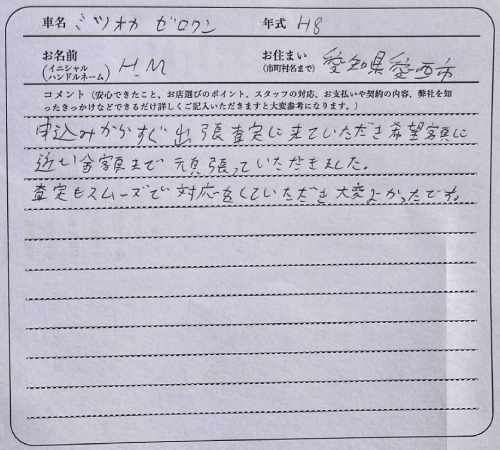 車名 ミツオカ ゼロワン 年式 H8
お名前 (イニシャル ハンドルネーム) H.M お住まい (市町村名まで) 愛知県愛西市
コメント（安心できたこと、お店選びのポイント、スタッフの対応、お支払いや契約の内容、弊社を知
ったきっかけなどできるだけ詳しくご記入いただきますと大変参考になります。）
申込みからすぐ出張査定に来ていただき希望額に
近い金額まで頑張っていただきました。
査定もスムーズで対応をしていただき大変よかったです。